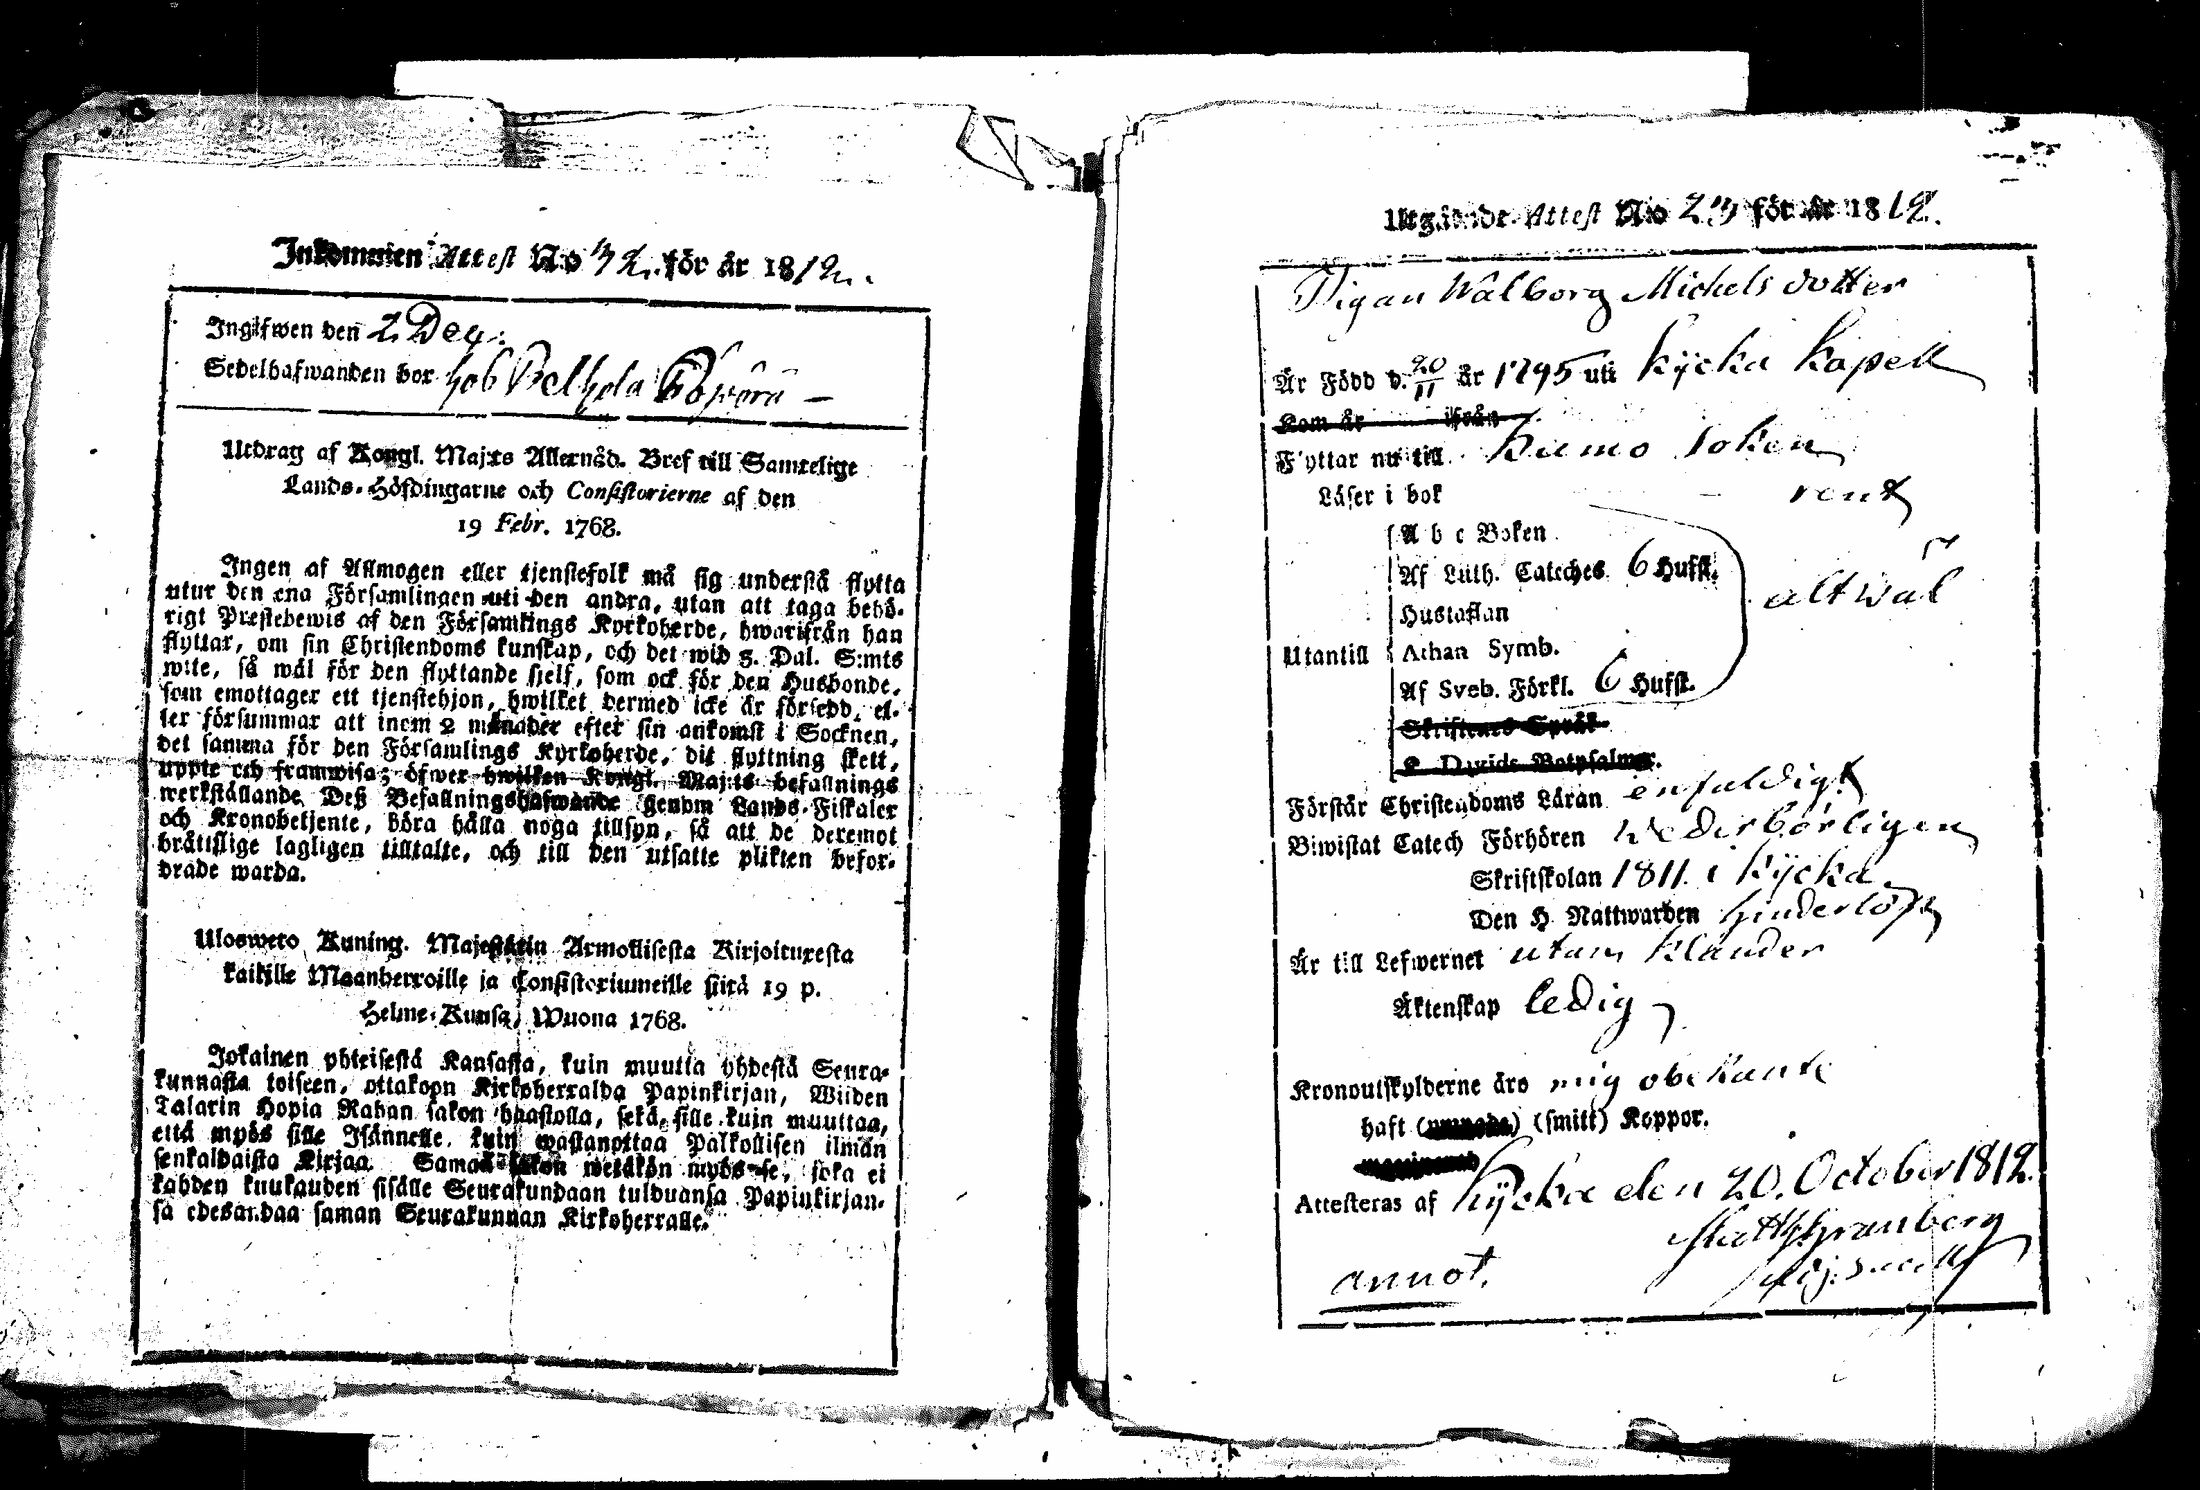 Inkommen Attest No 32. för år 1812.
Ingifwen den 2 Dec:
Sedelhafwanden bor hos
Utdrag af Kongl. Majts Allernåd. Bref till Samtelige
Lands-Höfdingarne och Consistorierne af den
19 Febr. 1768.
Ingen af Allmogen eller tjenstefolk må sig understå flytta
utur den ena Församlingen uti den andra, utan att taga behö-
rigt Prestebewis af den Församlings Kyrkoherde, hwarifrån han
flyttar, om sin Christendoms kunskap, och det wid 5. Dal. S:mts
wite, så wäl för den flyttande sjelf, som ock för den Husbonde,
som emottager ett tjenstehjon, hwilket dermed icke är försedd, el-
ler försummar att inom 2 månader efter sin ankomst i Socknen,
det samma för den Församlings Kyrkoherde, dit flyttning skett,
uppte och framwisa; öfwer hwilken Kongl. Majts befallnings
werkställande Deß Befallningshafwande genom Lands-Fiskaler
och Kronobetjente, böra hålla noga tillsyn, så att de deremot
bråttslige lagligen tilltalte, och till den utsatte plikten befor-
drade warda.
Ulosweto Kuning. Majestätin Armollisesta Kirjoituxesta
kaikille Maanherroille ja Consistoriumeille siitä 19 p.
Helme-Kuusa, Wuona 1768.
Jokainen yhteisestä Kansasta, kuin muutta yhdestä Seura-
kunnasta toiseen, ottakoon Kirkoherralda Papinkirjan, Wiiden
Talarin Hopia Rahan sakon haastolla, sekä sille kuin muuttaa,
että myös sille Isännelle, kuin wastanottaa Palkollisen ilman
senkaldaista Kirjaa. Saman sakon wetäkön myös se, joka ei
kahden kuukauden sisälle Seurakundaan tulduansa Papinkirjan-
sa edesandaa saman Seurakunnan Kirkoherralle.
Utgående Attest No 23 för år 1812.
Pigan Walborg Michels dotter
Är Född d. 20/11 år 1795 uti Kÿcka Kapell
Kom år ifrån
Flyttar nu till Kumo Soken
Läser i bok rent
A b c Boken
Af Luth. Catches 6 Hufst.
Hustaflan alt wäl
Utantill Athan Symb.
Af Sveb. Förkl. 6 Hufst.
Skriftenes Språk
K. Davids Botpsalmer.
Förstår Christendoms Läran enfaldigt
Biwistat Catech Förhören wederbörligen
Skriftskolan 1811. i Kÿcka
Den H. Nattwarden hinderlöst
Är till Lefwernet utan klander
Äktenskap ledig
Kronoutskylderne äro mig obekante
haft (smitt) Koppor.
Attesteras af Kÿcka den 20. October 1812.
Granberg
annot.